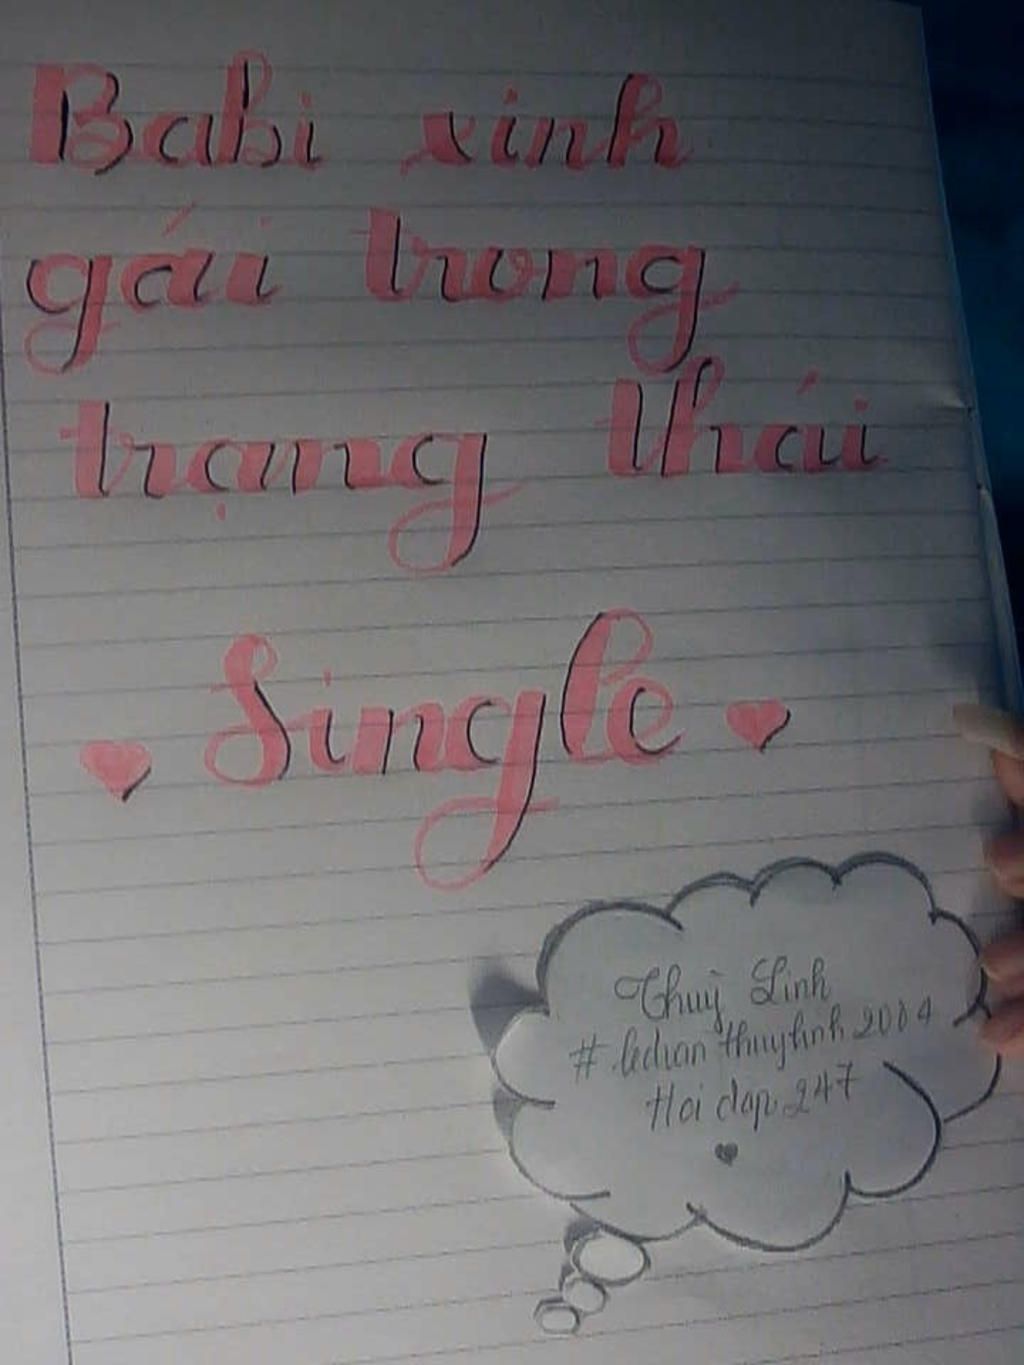 Babi xinh
gái trong
trạng thái
Single
Thuỳ Linh
# leduanthuylinh2004
Hoi dap 247